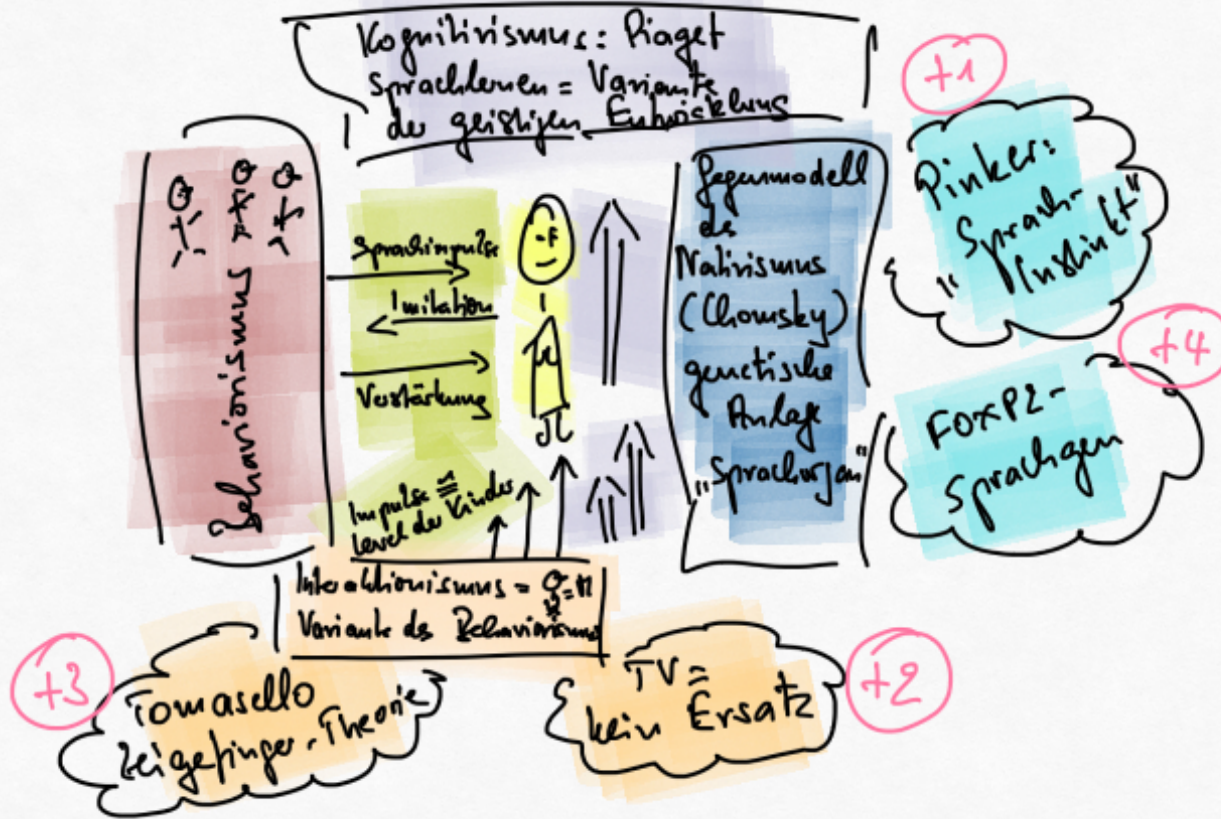 Kognitivismus: Piaget
Sprachlernen = Variante
der geistigen Entwicklung
+1
Pinker:
"Sprach-
Instinkt"
Behaviorismus
Sprachimpulse
Imitation
Verstärkung
Impulse ≅
Level der Kinder
Gegenmodell
des
Nativismus
(Chomsky)
genetische
Anlage
"Sprachorgan"
+4
FOXP2-
Sprachgen
Interaktionismus =
Variante des Behaviorismus
+3
Tomasello
Zeigefinger-Theorie
TV =
kein Ersatz
+2